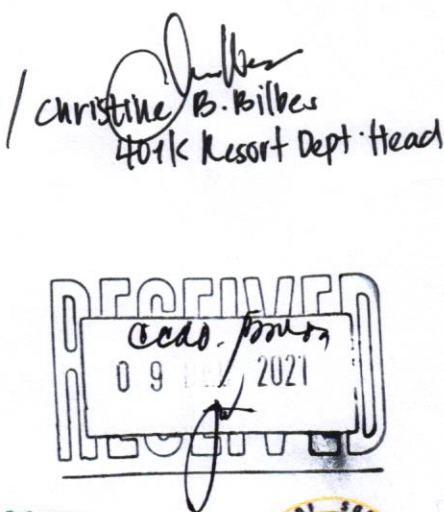 / Christine B. Bilbes
401K Resort Dept. Head
RECEIVED
09 2021